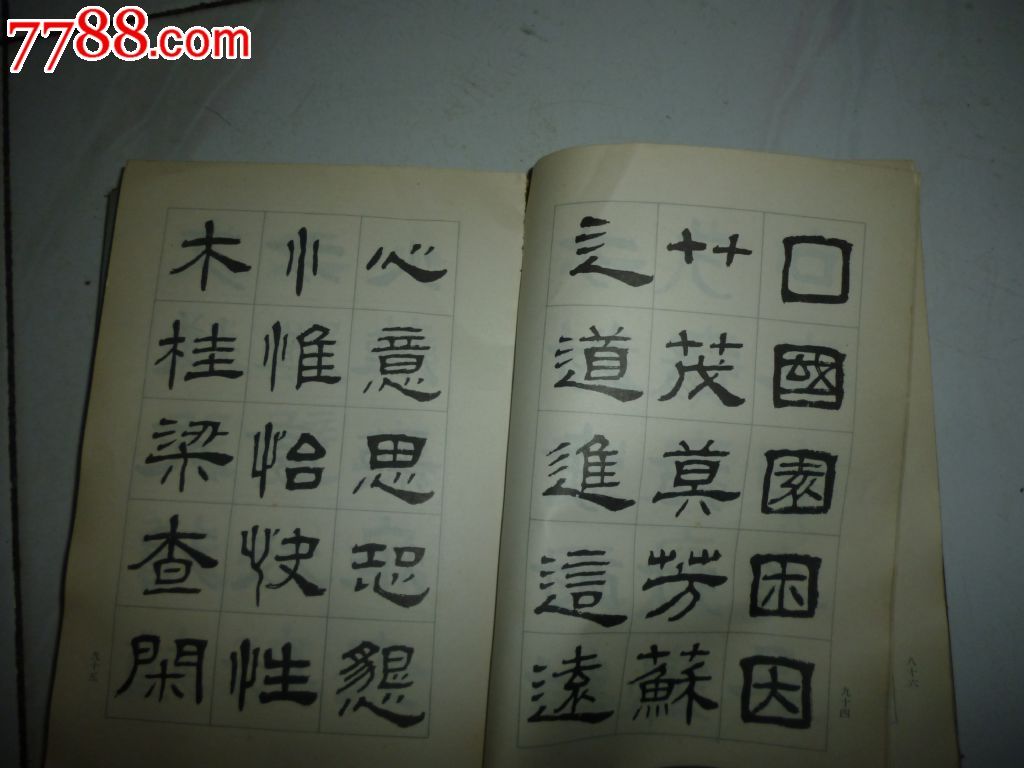 7788.com
口國園困因
艹茂莫芳蘇
辶道進這遠
九十四
八十六
心意思恐懇
忄惟怡快性
木桂梁查閑
九十五